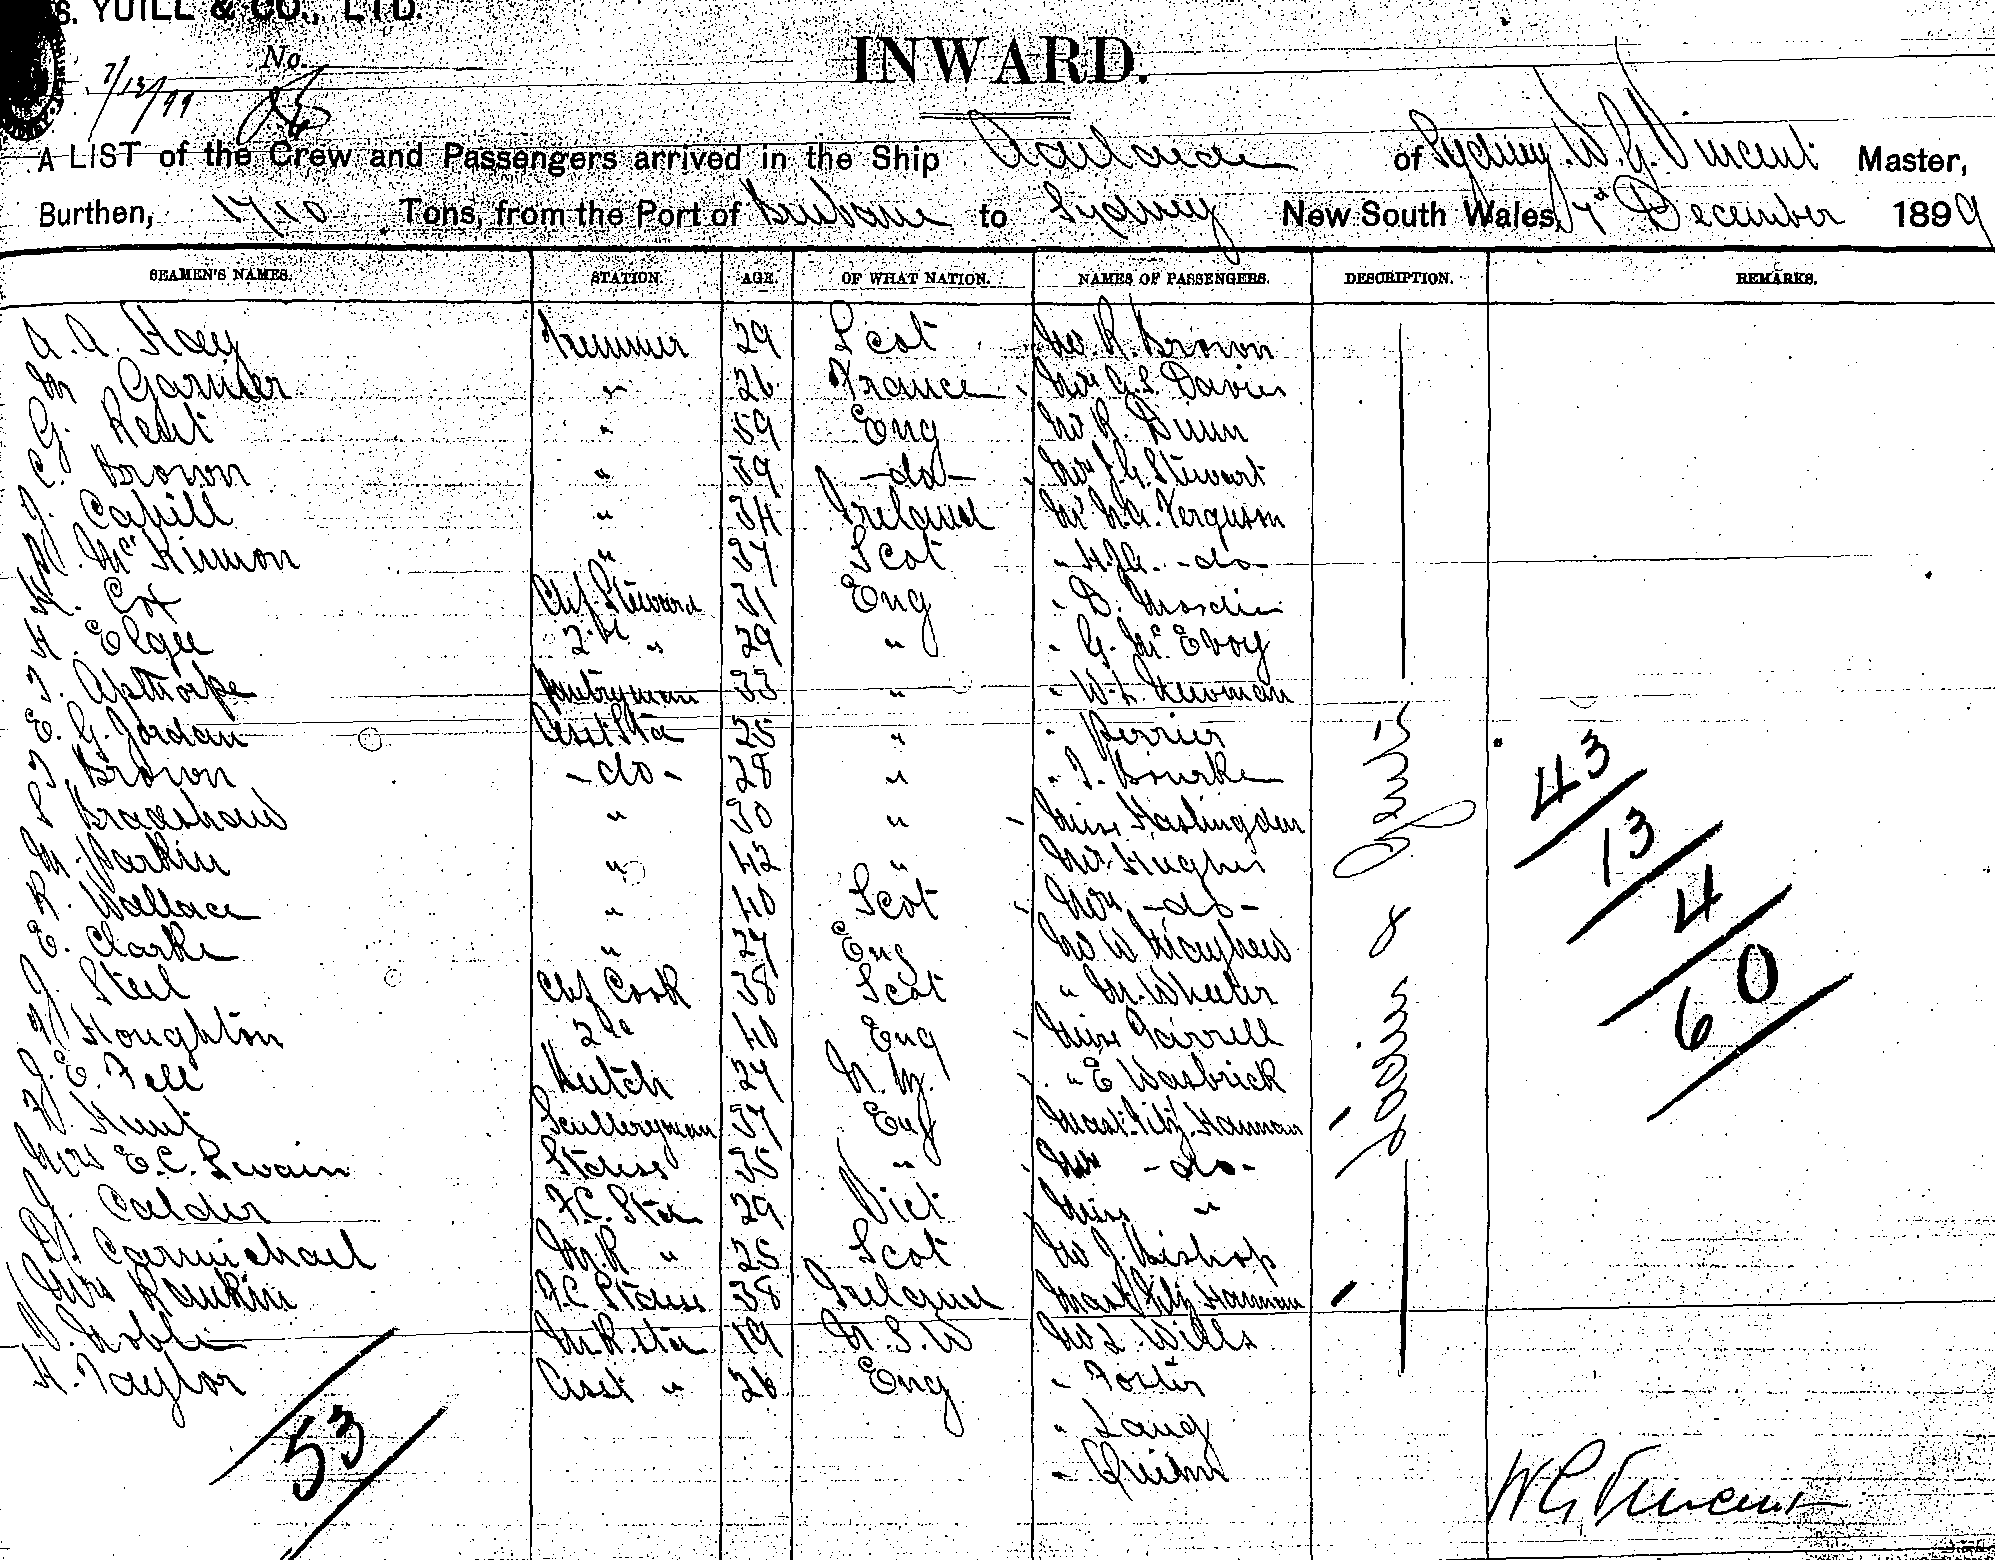 S. YUILL & CO., LTD.
No.
7/12/99
INWARD.
A LIST of the Crew and Passengers arrived in the Ship of Sydney. W. G. Vincent Master,
Burthen, 1710 Tons, from the Port of Brisbane to Sydney New South Wales, 7th December 1899
SEAMEN'S NAMES. STATION. AGE. OF WHAT NATION. NAMES OF PASSENGERS. DESCRIPTION. REMARKS.
A. A. Hoey Trimmer 29 Scot Mr R. Brown
M Garnier " 26 France Mrs G. S. Davies
G. " 59 Eng Mr R. Dunn
C. Brown " 39 -do- Mrs J. G. Stewart
J. Cahill " 34 Ireland Mr Ferguson
McKinnon " 37 Scot " -do-
Cox Chf Steward 31 Eng " B.
H. Elgee 2nd " 29 " " G. McEvoy
T. Apthorpe Pantryman 33 " " W. L. Newman
E. G. Jordan Asst Std 25 " " Perrier
T. Brown -do- 28 " " T. Bourke
Bradshaw " 30 " Miss Haslingden
M. Parkin " 42 " Mr Hughes
R. Wallace " 40 Scot Mrs -do-
E. Clarke " 27 Eng Mr W Mayhew
J. Steel Chf Cook 38 Scot " M. Wheeler
Houghton 2nd 40 Eng Miss Farrell
J. E. Fell 27 " E Wasbrick
Hunt Sculleryman 37 Eng Mast. Fitz Hannan
Mrs E. C. Swain Stdess 35 " Mrs -do-
J. Calder F.C. Std 29 Vict Miss "
Carmichael M.R " 25 Scot Mr J. Bishop
Mrs Rankin F.C. Stdess 38 Ireland Mast Fitz Hannan
Noble M.R. Std 19 N.S.W Mr L. Wills
H. Taylor Asst " 26 Eng " Foster
" Lang
" Quinn
Saloon &
43
13
4
60
53
W G Vincent